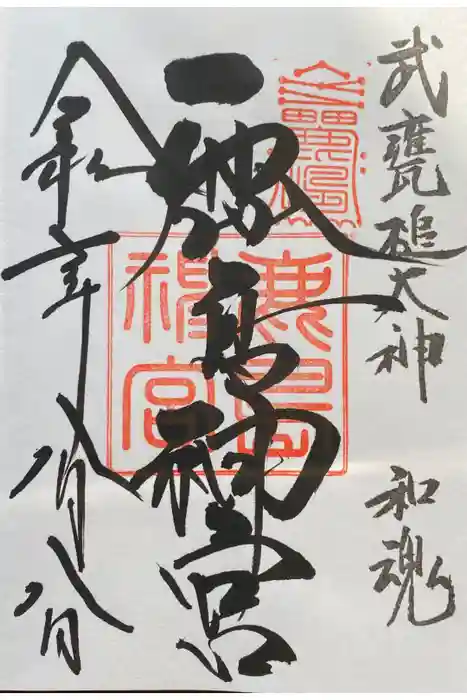 武甕槌大神 和魂
鹿島神宮
鹿島神宮
令和元年八月八日